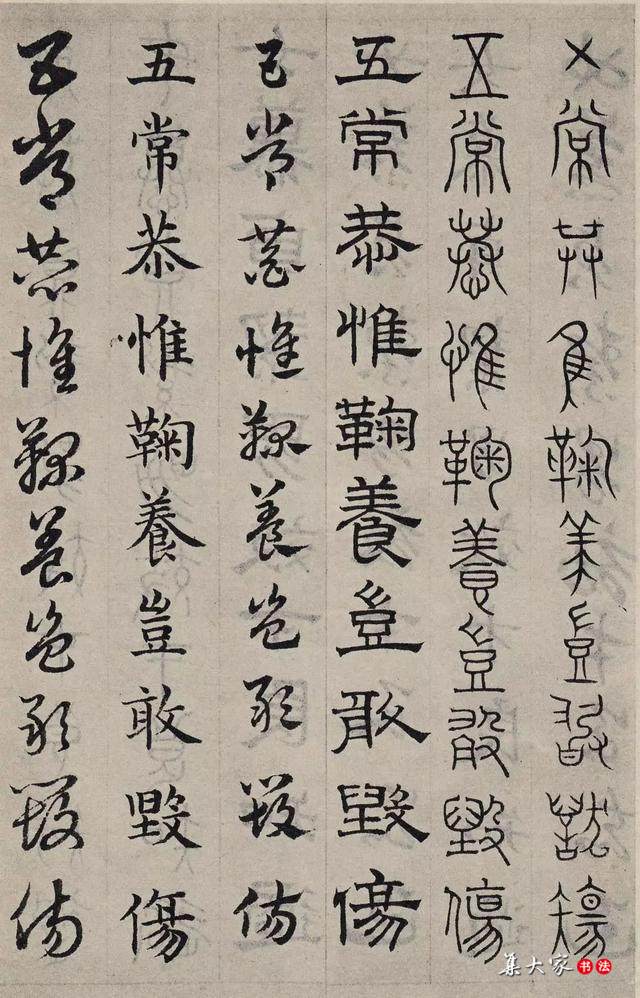 五常恭惟鞠養豈敢毀傷
五常恭惟鞠養豈敢毀傷
五常恭惟鞠養豈敢毀傷
五常恭惟鞠養豈敢毀傷
五常恭惟鞠養豈敢毀傷
五常恭惟鞠養豈敢毀傷
集大家 书法